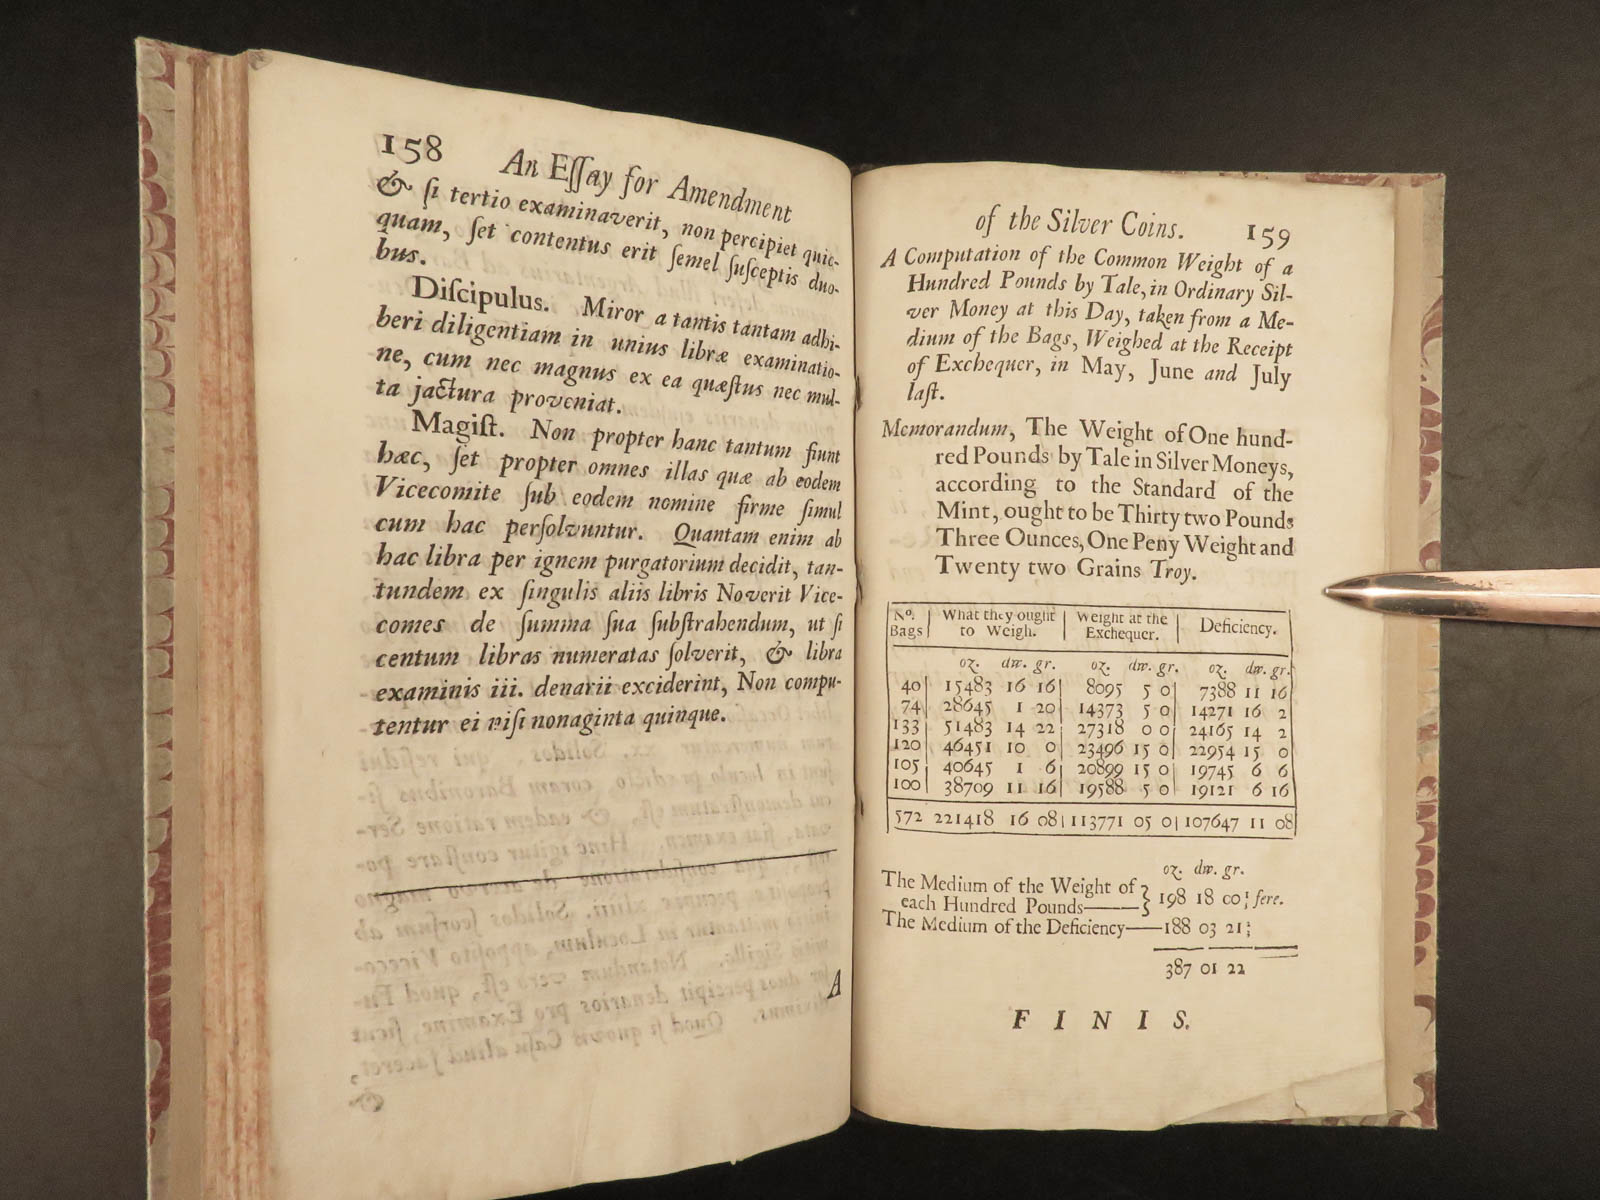 158 An Eſſay for Amendment
& ſi tertio examinaverit, non percipiet quic-
quam, ſet contentus erit ſemel ſuſceptis duo-
bus.
Diſcipulus. Miror a tantis tantam adhi-
beri diligentiam in unius libræ examinatio-
ne, cum nec magnus ex ea quæſtus nec mul-
ta jactura proveniat.
Magiſt. Non propter hanc tantum fiunt
hæc, ſet propter omnes illas quæ ab eodem
Vicecomite ſub eodem nomine firme ſimul
cum hac perſolvuntur. Quantam enim ab
hac libra per ignem purgatorium decidit, tan-
tundem ex ſingulis aliis libris Noverit Vice-
comes de ſumma ſua ſubſtrahendum, ut ſi
centum libras numeratas ſolverit, & libra
examinis iii. denarii exciderint, Non compu-
tentur ei niſi nonaginta quinque.
A
of the Silver Coins. 159
A Computation of the Common Weight of a
Hundred Pounds by Tale, in Ordinary Sil-
ver Money at this Day, taken from a Me-
dium of the Bags, Weighed at the Receipt
of Exchequer, in May, June and July
laſt.
Memorandum, The Weight of One hund-
red Pounds by Tale in Silver Moneys,
according to the Standard of the
Mint, ought to be Thirty two Pounds
Three Ounces, One Peny Weight and
Twenty two Grains Troy.
No. Bags | What they ought to Weigh. | Weight at the Exchequer. | Deficiency.
oz. dw. gr. oz. dw. gr. oz. dw. gr.
40 | 15483 16 16 | 8095 5 0 | 7388 11 16
74 | 28645 1 20 | 14373 5 0 | 14271 16 2
133 | 51483 14 22 | 27318 0 0 | 24165 14 2
120 | 46451 10 0 | 23496 15 0 | 22954 15 0
105 | 40645 1 6 | 20899 15 0 | 19745 6 6
100 | 38709 11 16 | 19588 5 0 | 19121 6 16
572 221418 16 08 | 113771 05 0 | 107647 11 08
oz. dw. gr.
The Medium of the Weight of
each Hundred Pounds—— } 198 18 00 fere.
The Medium of the Deficiency——188 03 21
387 01 22
FINIS.